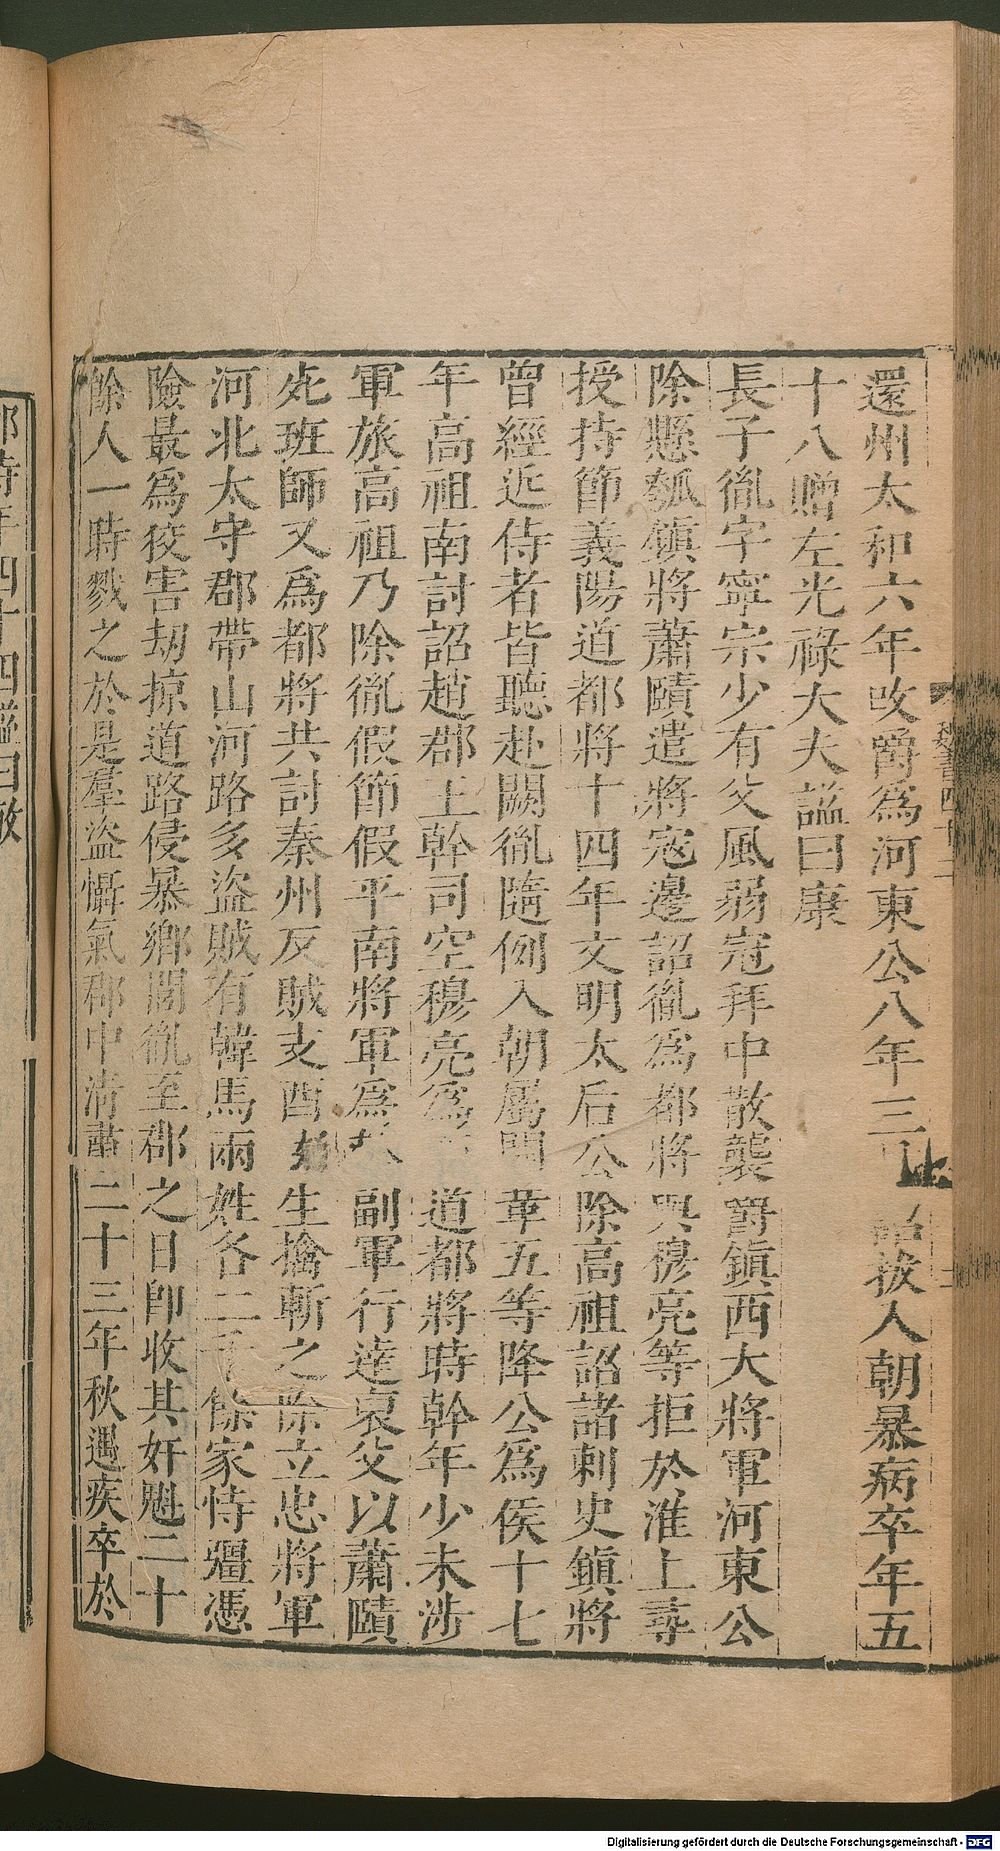 還州太和六年改爵爲河東公八年三詔拔入朝暴病卒年五
十八贈左光祿大夫謚曰康
長子胤字寧宗少有父風弱冠拜中散襲爵鎮西大將軍河東公
除懸瓠鎮將蕭賾遣將寇邊詔胤爲都將與穆亮等拒於淮上尋
授持節義陽道都將十四年文明太后公除高祖詔諸刺史鎮將
曾經近侍者皆聽赴闕胤隨例入朝屬開革五等降公爲侯十七
年高祖南討詔趙郡王幹司空穆亮爲道都將時幹年少未涉
軍旅高祖乃除胤假節假平南將軍爲副軍行達襄父以蕭賾
死班師又爲都將共討秦州反賊支酉生擒斬之除立忠將軍
河北太守郡帶山河路多盜賊有韓馬兩姓各二千餘家恃彊憑
險最爲狡害劫掠道路侵暴鄉閭胤至郡之日即收其奸魁二十
餘人一時戮之於是羣盜懾氣郡中清肅二十三年秋遇疾卒於
魏書四十二
四十四謚曰敬
Digitalisierung gefördert durch die Deutsche Forschungsgemeinschaft - DFG